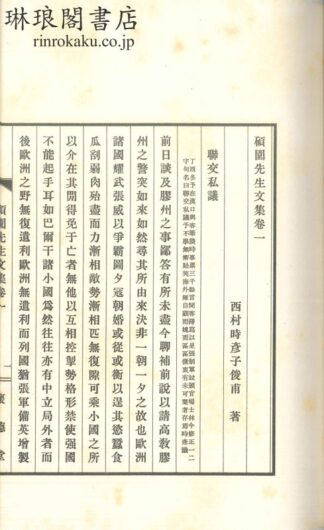 琳琅閣書店
rinrokaku.co.jp
碩園先生文集卷一
西村時彥子俊甫 著
聯交私議
前日談及膠州之事鄙答有所未盡今歸補前說以請高敎膠
州之警突如來如然尋其所由來決非一朝一夕之故也歐洲
諸國耀武張威以爭霸圖夕冦朝婚或從或衡以逞其慾蠶食
瓜剖弱肉殆盡而力漸相敵勢漸相匹無復隙可乘小國之所
以介在其間得免于亡者無他以互相控掣勢格形禁使强國
不能起手耳如巴爾干諸小國爲然往往亦有中立局外者而
後歐洲之野無復遺利歐洲無遺利而列國猶張軍備英增製
碩園先生文集卷一
一
懷德堂